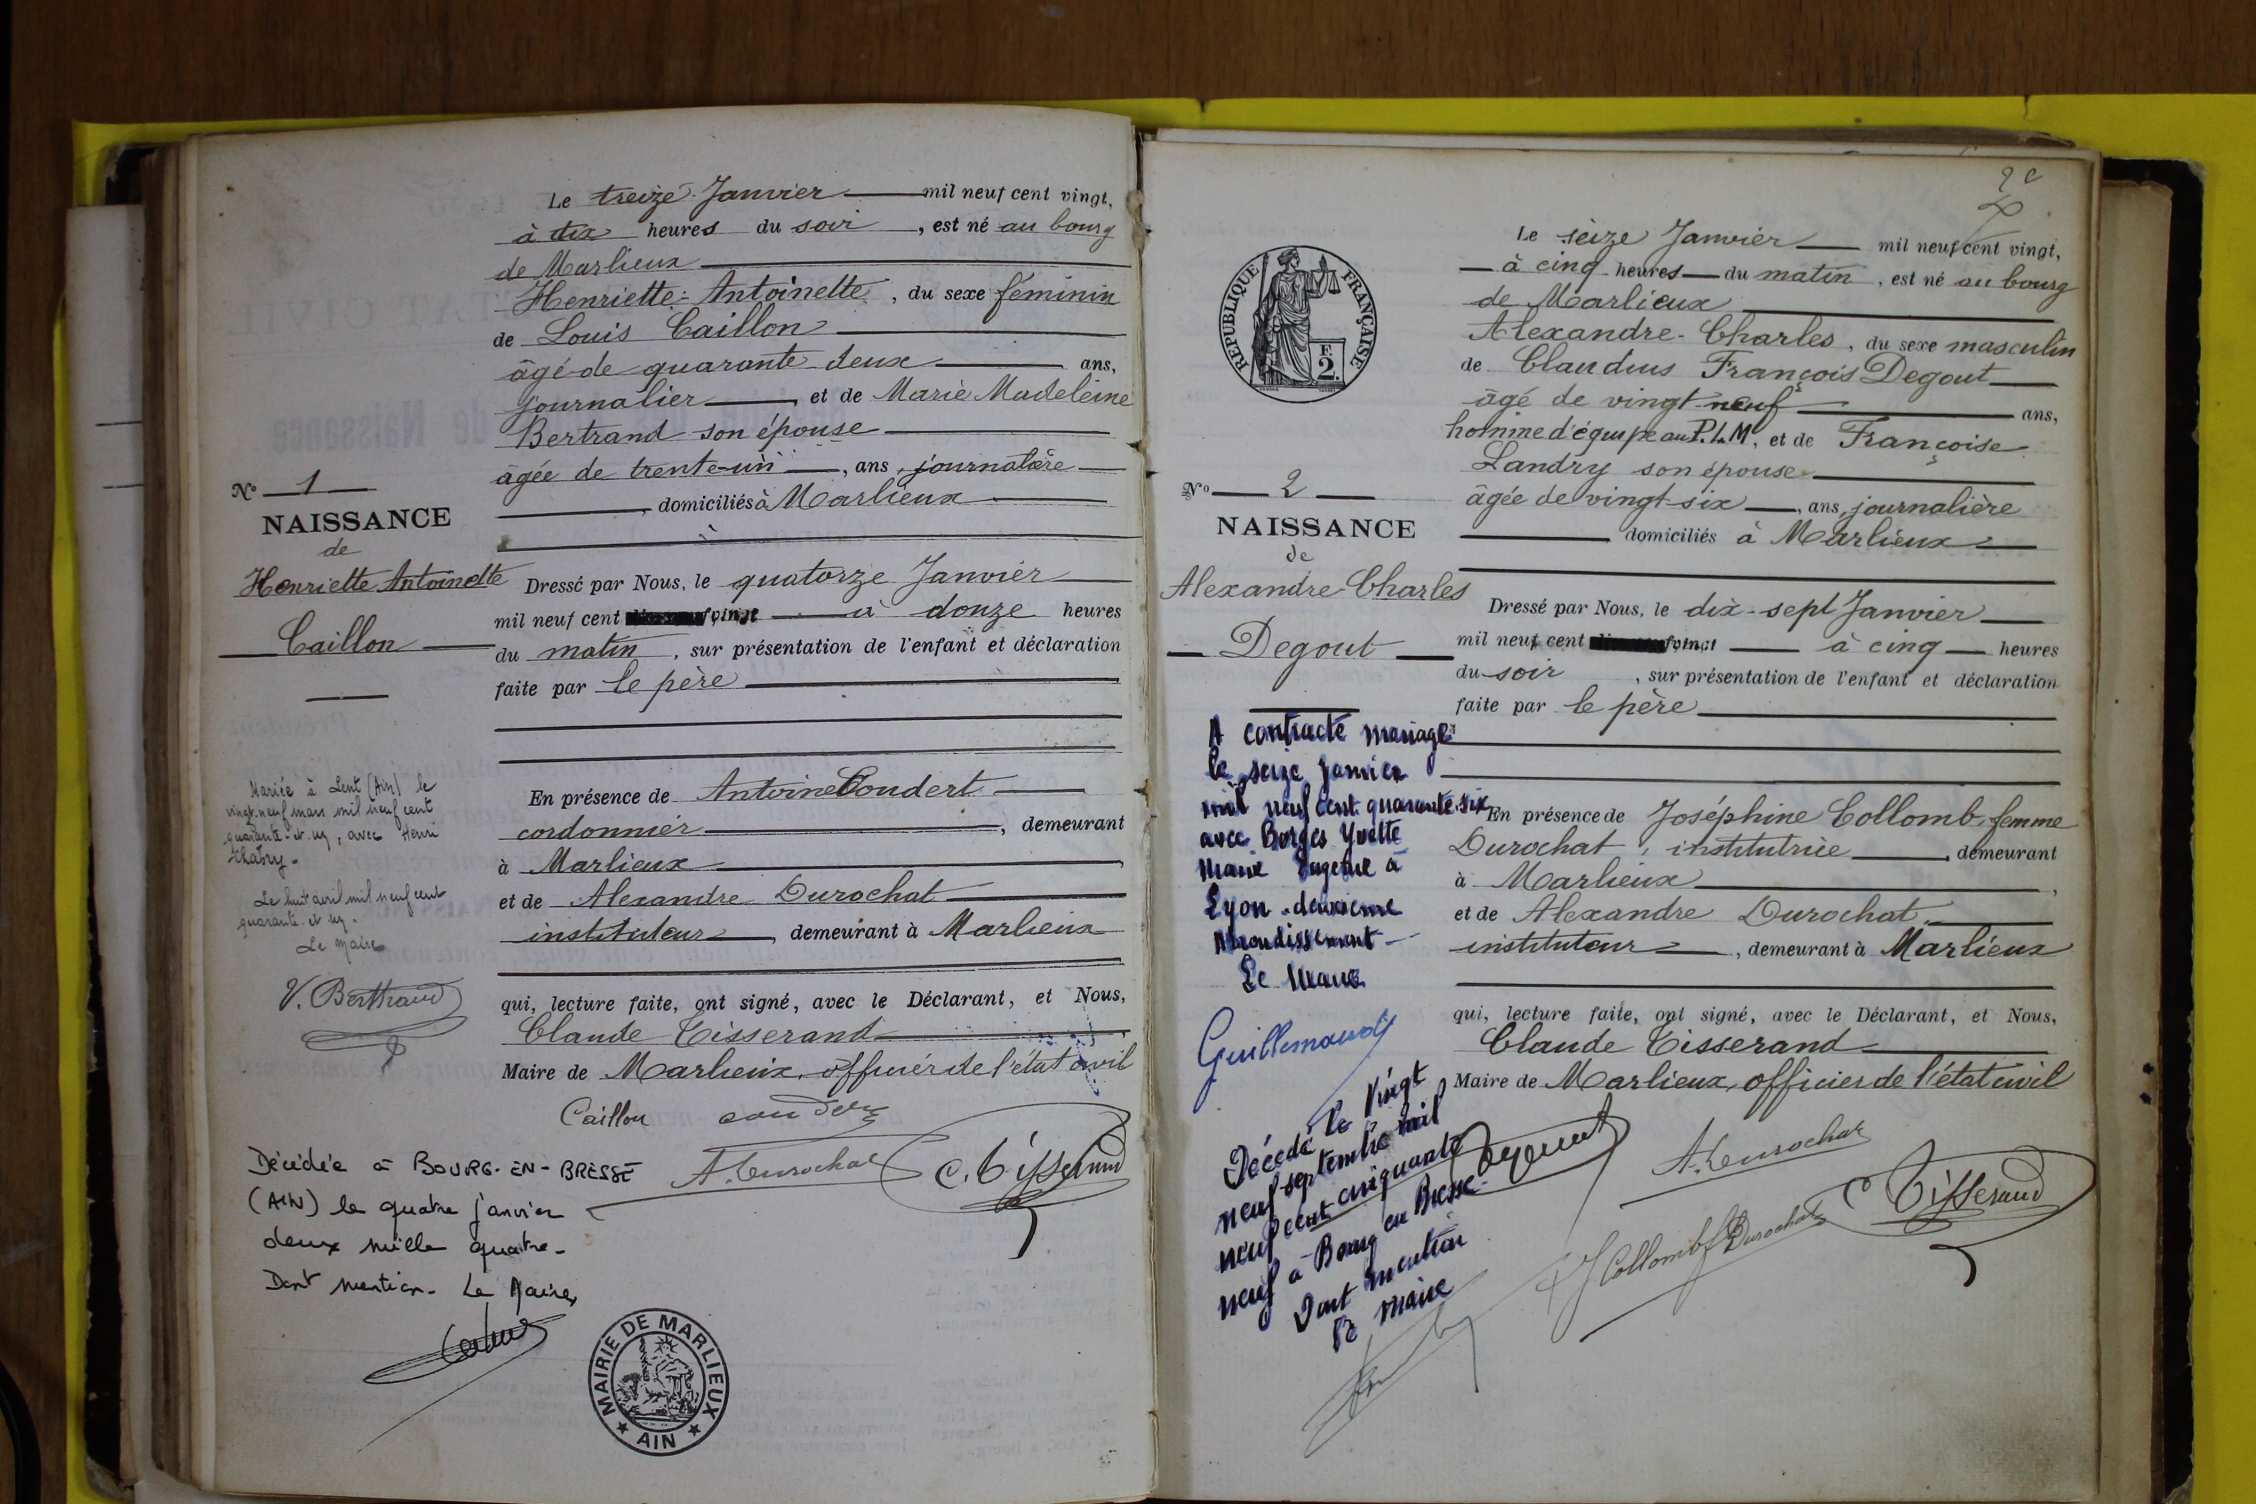 Le treize Janvier mil neuf cent vingt,
à dix heures du soir, est né au bourg
de Marlieux
Henriette Antoinette, du sexe féminin
de Louis Caillon
âgé de quarante deux ans,
journalier, et de Marie Madeleine
Bertrand son épouse
âgée de trente-un, ans, journalière
, domiciliés à Marlieux
Nº 1
NAISSANCE
de
Henriette Antoinette
Caillon
Dressé par Nous, le quatorze Janvier
mil neuf cent vingt à douze heures
du matin, sur présentation de l'enfant et déclaration
faite par le père
En présence de Antoine Coudert
cordonnier, demeurant
à Marlieux
et de Alexandre Durochat
instituteur, demeurant à Marlieux
qui, lecture faite, ont signé, avec le Déclarant, et Nous,
Claude Tisserand
Maire de Marlieux, officier de l'état civil
Caillon Couder
A. Durochat C. Tisserand
Mariée à Lent (Ain) le
vingt-neuf mars mil neuf cent
quarante-et-un, avec Henri
Le huit avril mil neuf cent
quarante-et-un.
Le Maire
V. Berthaud
Décédée à BOURG-EN-BRESSE
(AIN) le quatre janvier
deux mille quatre-
Dont mention. Le Maire,
MAIRIE DE MARLIEUX
AIN
2
Le seize Janvier mil neuf cent vingt,
à cinq heures du matin, est né au bourg
de Marlieux
Alexandre-Charles, du sexe masculin
de Claudius François Degout
âgé de vingt-neuf ans,
homme d'équipe au P.L.M, et de Françoise
Landry son épouse
âgée de vingt-six, ans, journalière
domiciliés à Marlieux
REPUBLIQUE FRANÇAISE
E
2.
Nº 2
NAISSANCE
de
Alexandre-Charles
Degout
Dressé par Nous, le dix-sept Janvier
mil neuf cent vingt à cinq heures
du soir, sur présentation de l'enfant et déclaration
faite par le père
En présence de Joséphine Collomb, femme
Durochat, institutrice, demeurant
à Marlieux,
et de Alexandre Durochat,
instituteur, demeurant à Marlieux
qui, lecture faite, ont signé, avec le Déclarant, et Nous,
Claude Tisserand
Maire de Marlieux, officier de l'état civil
Degout A. Durochat
J Collomb f Durochat C Tisserand
A contracté mariage
le seize janvier
mil neuf cent quarante six
avec Borges Yvette
Marie Eugénie à
Lyon deuxième
Arrondissement
Le Maire
Guillemaud
Décédé le vingt
neuf septembre mil
neuf cent cinquante
neuf à Bourg en Bresse
Dont mention
le maire